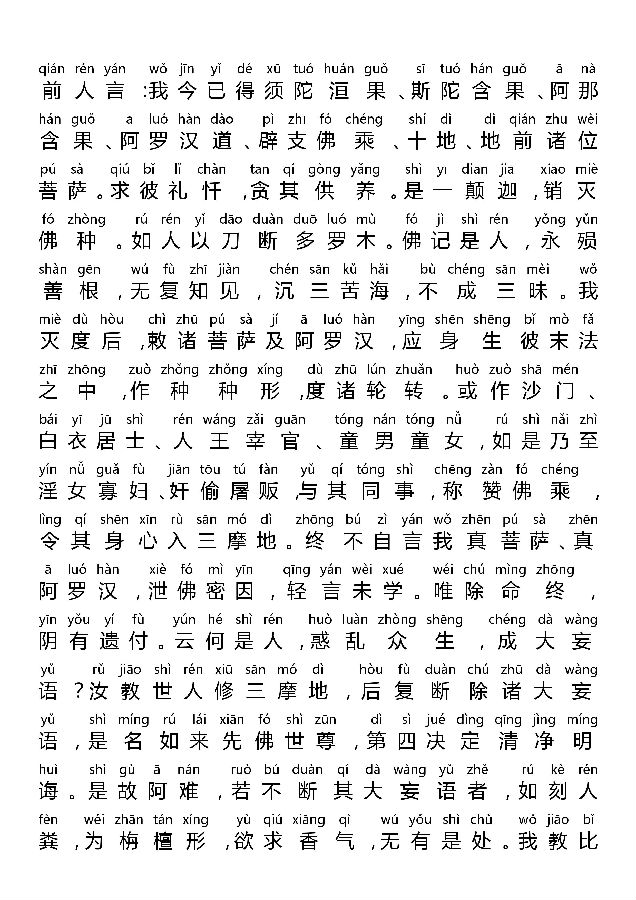 qián rén yán wǒ jīn yǐ dé xū tuó huán guǒ sī tuó hán guǒ ā nà
前人言:我今已得须陀洹果、斯陀含果、阿那
hán guǒ a luó hàn dào pì zhı fó chéng shí dì dì qián zhu wèi
含果、阿罗汉道、辟支佛乘、十地、地前诸位
pú sà qiú bǐ lǐ chàn tan qí gòng yǎng shì yı dian jia xiao miè
菩萨。求彼礼忏,贪其供养。是一颠迦,销灭
fó zhòng rú rén yǐ dāo duàn duō luó mù fó jì shì rén yǒng yǔn
佛种。如人以刀断多罗木。佛记是人,永殒
shàn gēn wú fù zhī jiàn chén sān kǔ hǎi bù chéng sān mèi wǒ
善根,无复知见,沉三苦海,不成三昧。我
miè dù hòu chì zhū pú sà jí ā luó hàn yīng shēn shēng bǐ mò fǎ
灭度后,敕诸菩萨及阿罗汉,应身生彼末法
zhī zhōng zuò zhǒng zhǒng xíng dù zhū lún zhuǎn huò zuò shā mén
之中,作种种形,度诸轮转。或作沙门、
bái yī jū shì rén wáng zǎi guān tóng nán tóng nǚ rú shì nǎi zhì
白衣居士、人王宰官、童男童女,如是乃至
yín nǚ guǎ fù jiān tōu tú fàn yǔ qí tóng shì chēng zàn fó chéng
淫女寡妇、奸偷屠贩,与其同事,称赞佛乘,
lìng qí shēn xīn rù sān mó dì zhōng bú zì yán wǒ zhēn pú sà zhēn
令其身心入三摩地。终不自言我真菩萨、真
ā luó hàn xiè fó mì yīn qīng yán wèi xué wéi chú mìng zhōng
阿罗汉,泄佛密因,轻言未学。唯除命终,
yīn yǒu yí fù yún hé shì rén huò luàn zhòng shēng chéng dà wàng
阴有遗付。云何是人,惑乱众生,成大妄
yǔ rǔ jiāo shì rén xiū sān mó dì hòu fù duàn chú zhū dà wàng
语?汝教世人修三摩地,后复断除诸大妄
yǔ shì míng rú lái xiān fó shì zūn dì sì jué dìng qīng jìng míng
语,是名如来先佛世尊,第四决定清净明
huì shì gù ā nán ruò bú duàn qí dà wàng yǔ zhě rú kè rén
诲。是故阿难,若不断其大妄语者,如刻人
fèn wéi zhān tán xíng yù qiú xiāng qì wú yǒu shì chù wǒ jiāo bǐ
粪,为栴檀形,欲求香气,无有是处。我教比